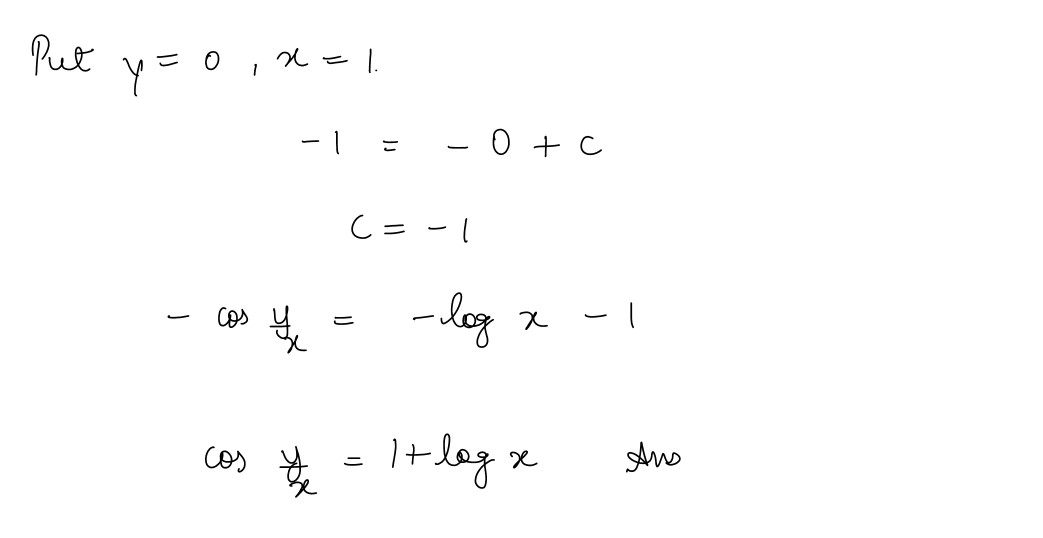 Put y = 0 , x = 1.
-1 = - 0 + c
C = -1
- cos y/x = -log x - 1
cos y/x = 1+log x Ans